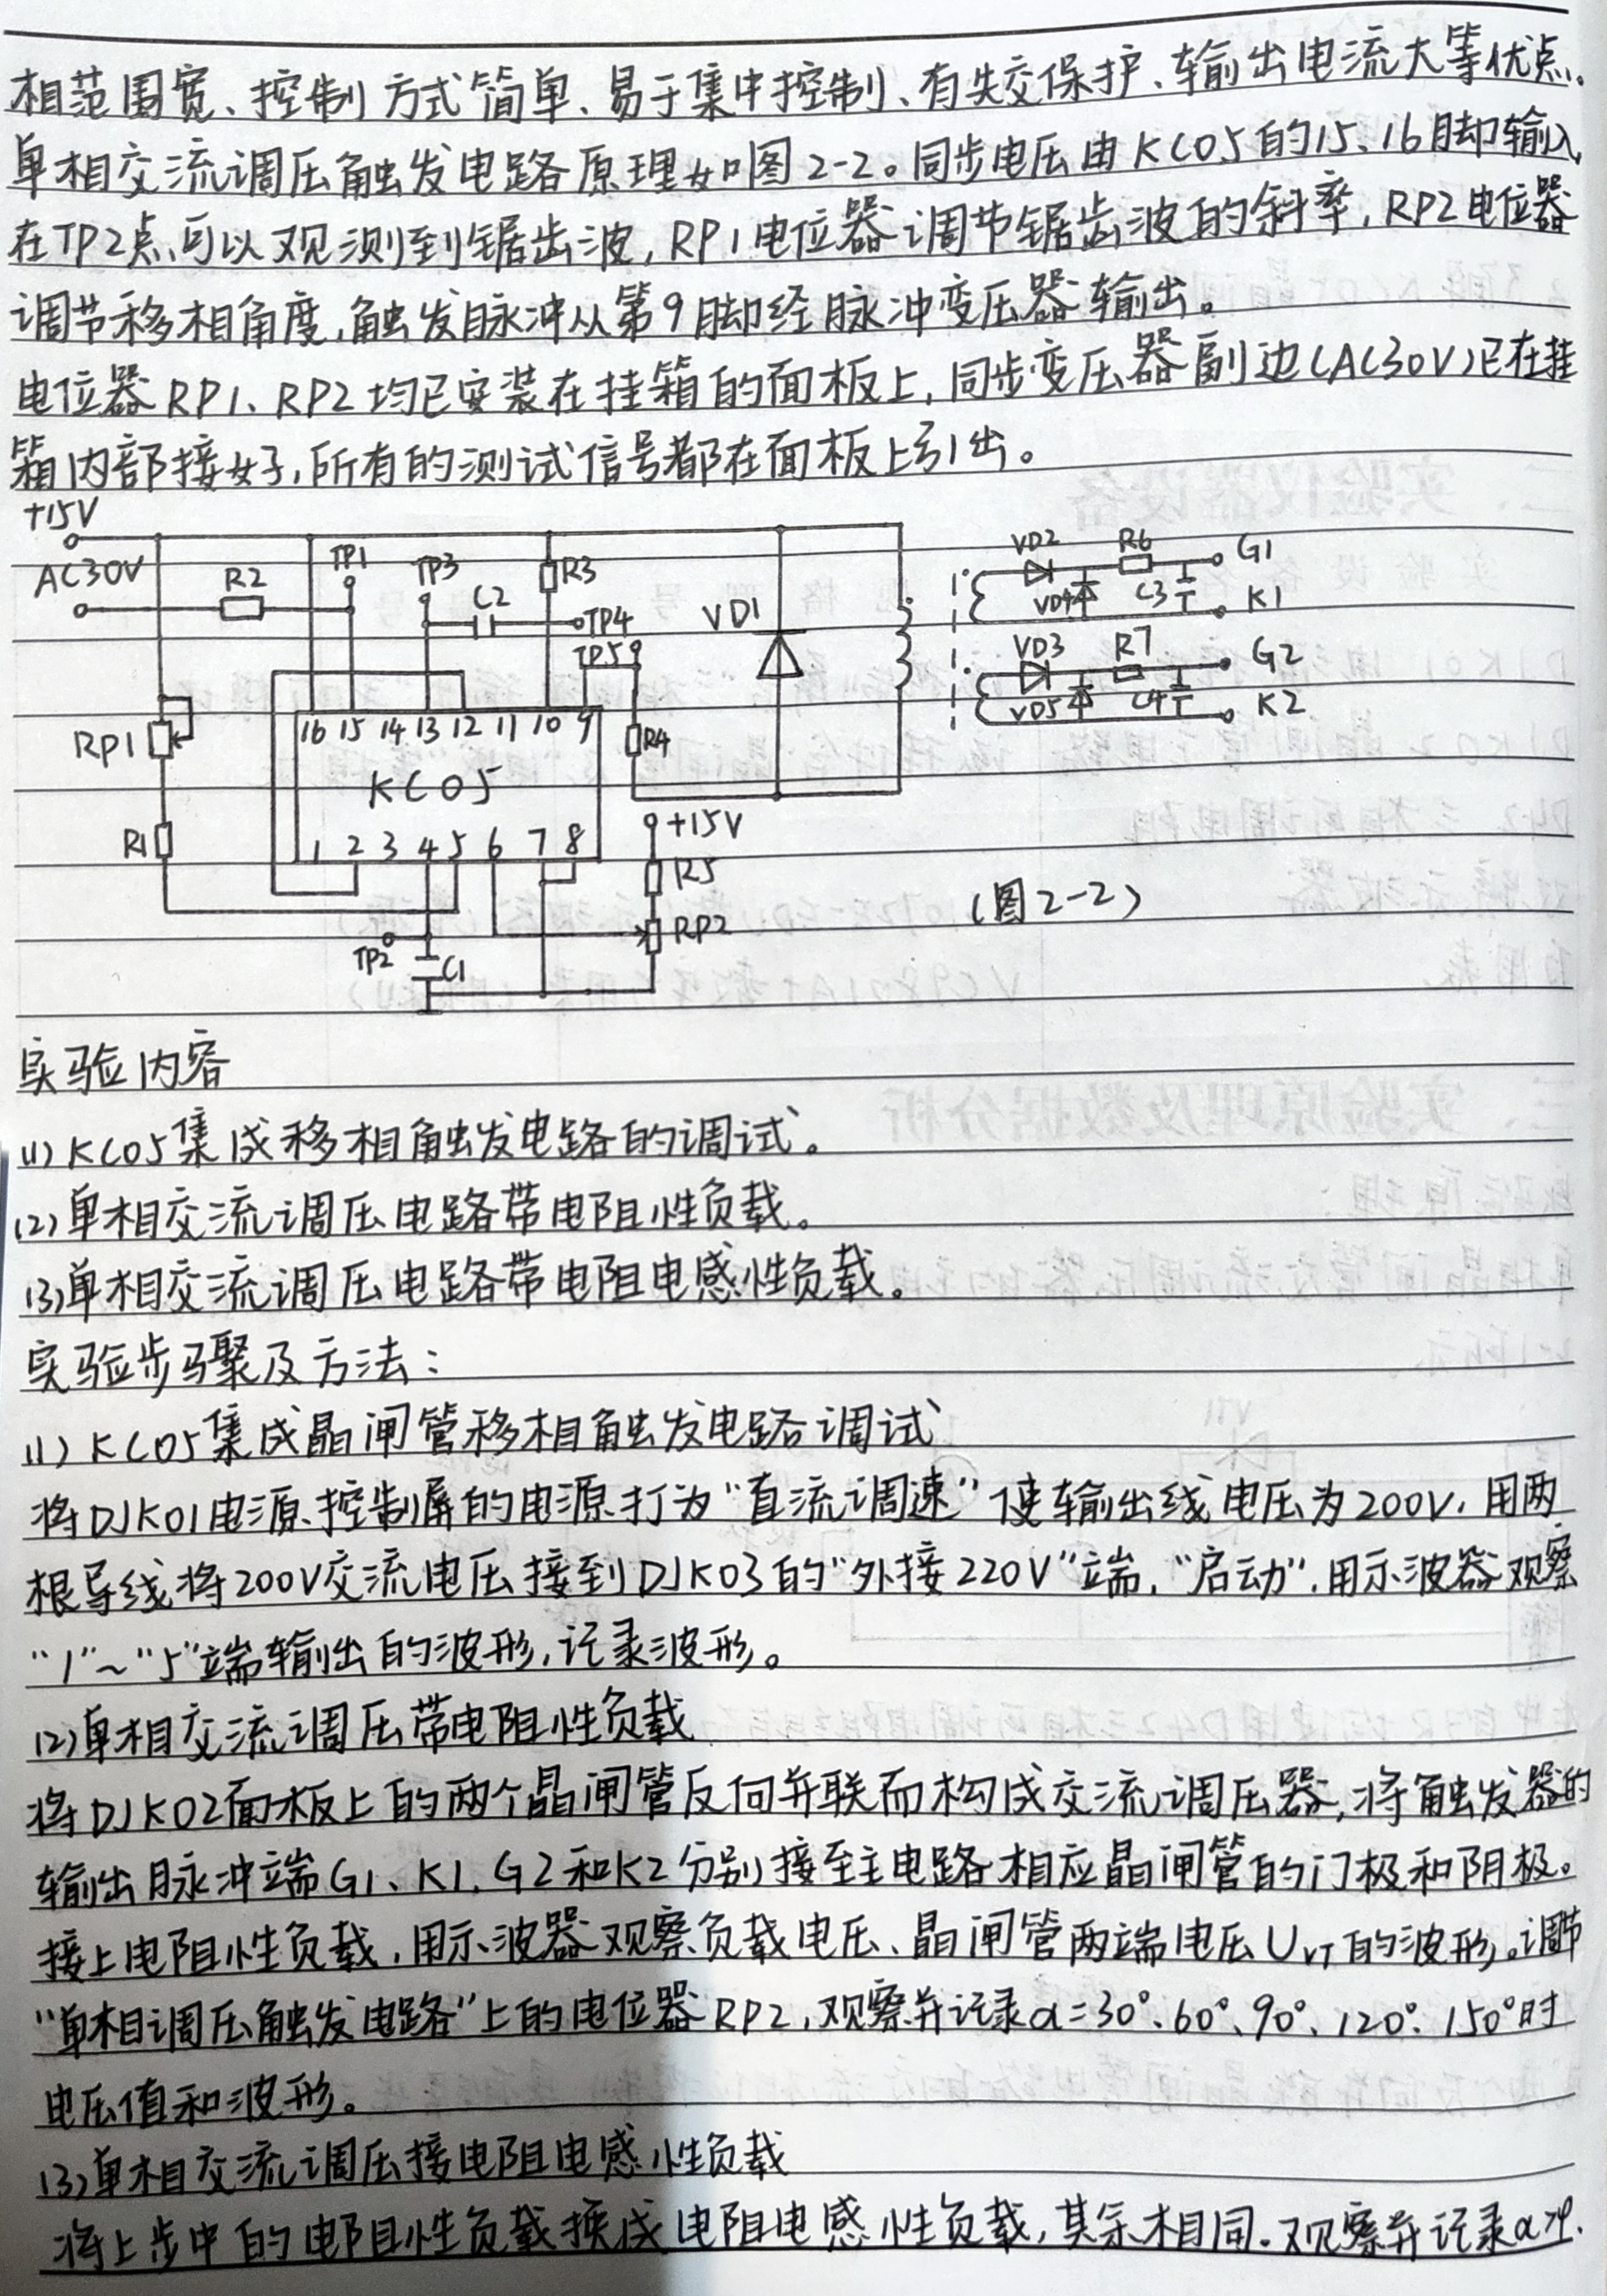 相范围宽、控制方式简单、易于集中控制、有失交保护、输出电流大等优点.
单相交流调压触发电路原理如图2-2。同步电压由KC05的15、16脚输入,
在TP2点可以观测到锯齿波,RP1电位器调节锯齿波的斜率,RP2电位器
调节移相角度,触发脉冲从第9脚经脉冲变压器输出。
电位器RP1、RP2均已安装在挂箱的面板上,同步变压器副边(AC30V)已在挂
箱内部接好,所有的测试信号都在面板上引出。
+15V
AC30V R2 TP1 TP3 C2 R3 TP4 TP5 VD1
VD2 R6 G1
VD4 C3 K1
VD3 R7 G2
VD5 C4 K2
RP1 16 15 14 13 12 11 10 9 R4
KC05
R1 1 2 3 4 5 6 7 8
+15V
R5
RP2
TP2 C1
(图2-2)
实验内容
(1) KC05集成移相触发电路的调试。
(2)单相交流调压电路带电阻性负载。
(3)单相交流调压电路带电阻电感性负载。
实验步骤及方法:
(1) KC05集成晶闸管移相触发电路调试
将DJK01电源控制屏的电源打为"直流调速"使输出线电压为200V,用两
根导线将200V交流电压接到DJK03的"外接220V"端,"启动",用示波器观察
"1"~"5"端输出的波形,记录波形。
(2)单相交流调压带电阻性负载
将DJK02面板上的两个晶闸管反向并联而构成交流调压器,将触发器的
输出脉冲端G1、K1,G2和K2分别接至主电路相应晶闸管的门极和阴极。
接上电阻性负载,用示波器观察负载电压、晶闸管两端电压UVT的波形。调节
"单相调压触发电路"上的电位器RP2,观察并记录α=30°、60°、90°、120°、150°时
电压值和波形。
(3)单相交流调压接电阻电感性负载
将上步中的电阻性负载换成电阻电感性负载,其余相同.观察并记录α